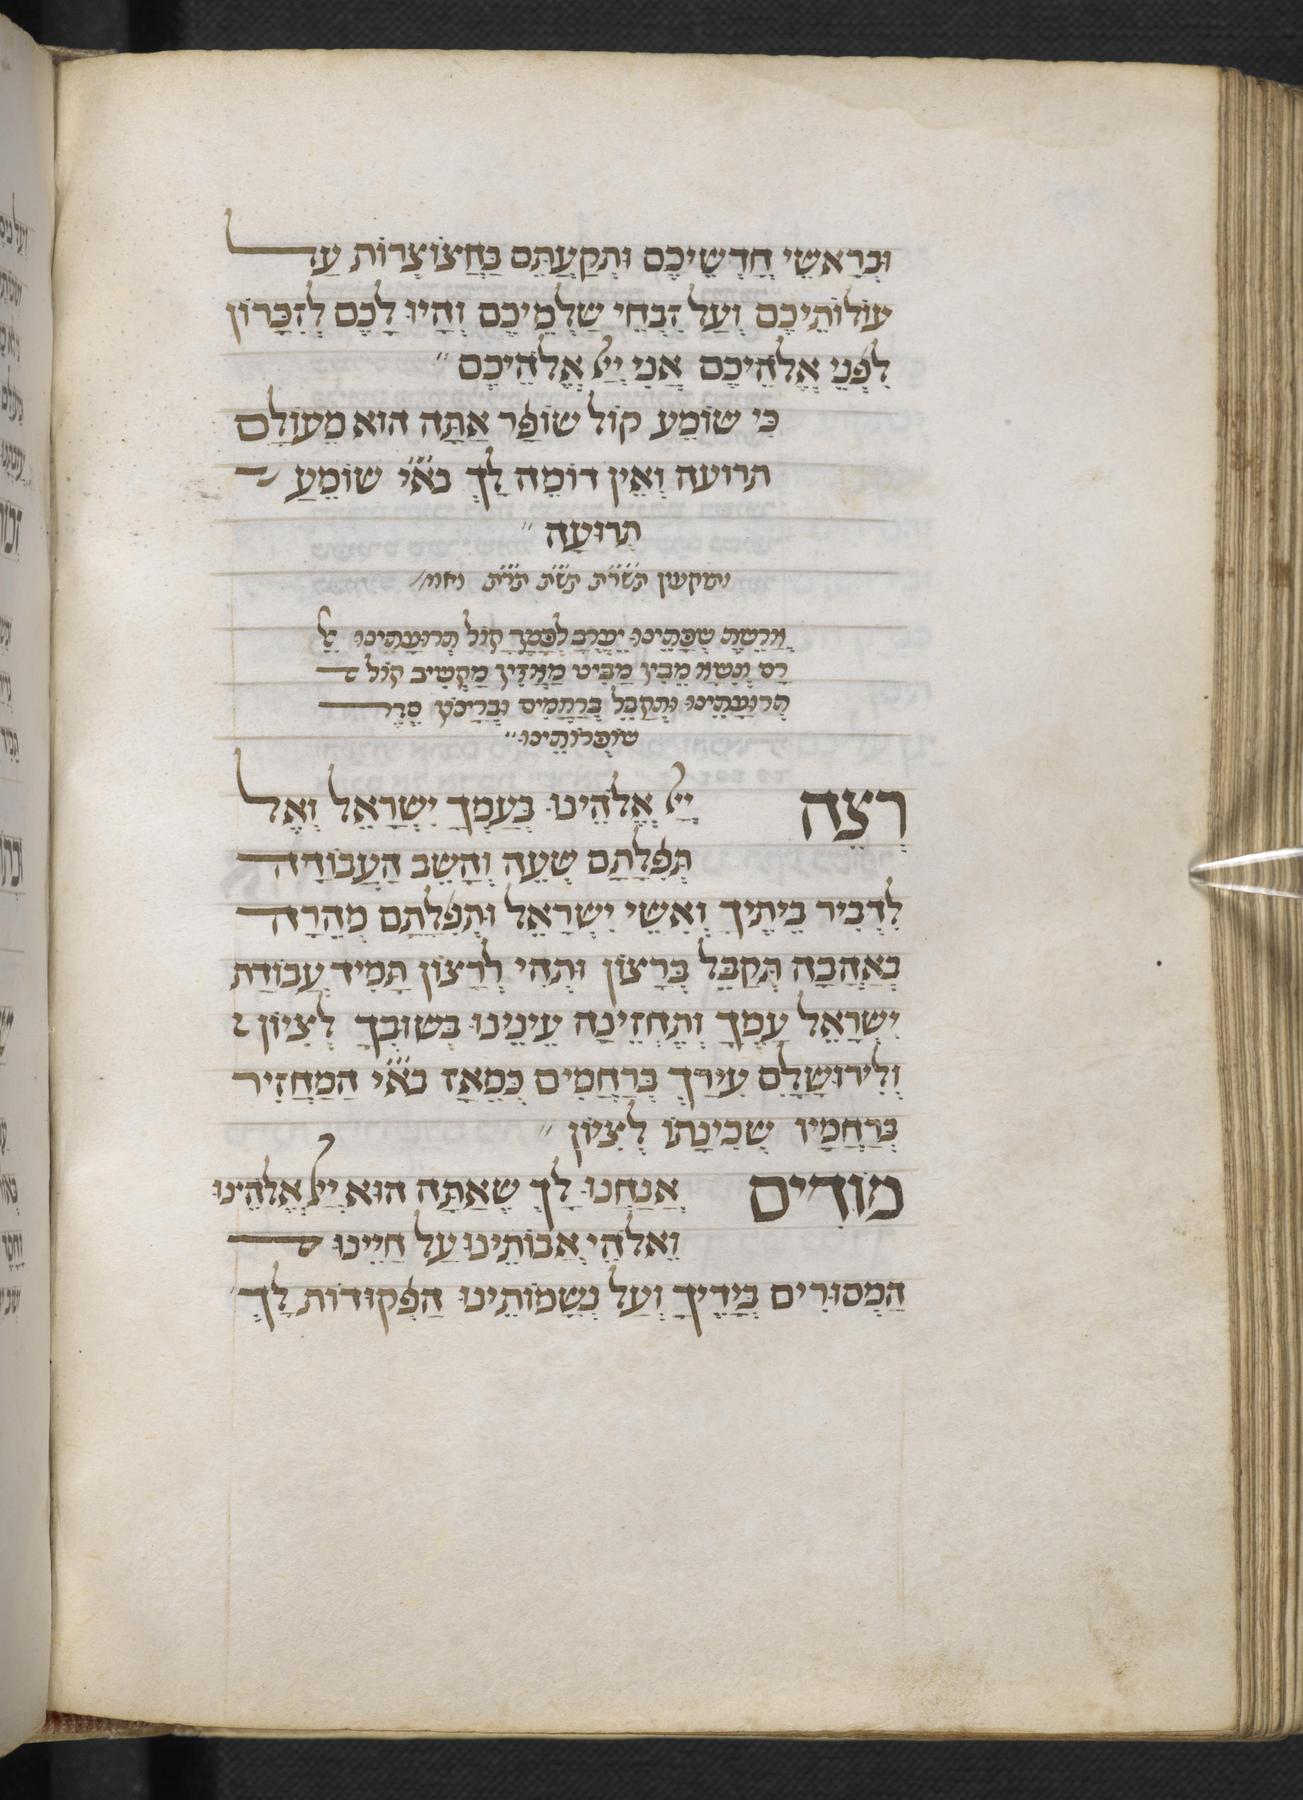 וּבְרָאשֵׁי חֳדְשֵׁיכֶם וּתְקַעְתֶּם בַּחֲצוֹצְרוֹת עַל
עוֹלוֹתֵיכֶם וְעַל זִבְחֵי שַׁלְמֵיכֶם וְהָיוּ לָכֶם לְזִכָּרוֹן
לִפְנֵי אֱלֹהֵיכֶם אֲנִי יְיָ אֱלֹהֵיכֶם
כִּי שׁוֹמֵעַ קוֹל שׁוֹפָר אַתָּה הוּא מֵעוֹלָם
תרועה וְאֵין דּוֹמֶה לָךְ בא״י שׁוֹמֵעַ
תְּרוּעָה
ותוקעין תשר״ת תש״ת תר״ת ואו׳
אֲרֶשֶׁת שְׂפָתֵינוּ יֶעֱרַב לְפָנֶךָ קוֹל תְּרוּעָתֵינוּ אֵל
רָם וְנִשָּׂא מֵבִין מַבִּיט מַאֲזִין מַקְשִׁיב קוֹל
תְּרוּעָתֵינוּ וּתְקַבֵּל בְּרַחֲמִים וּבְרָצוֹן סֵדֶר
שׁוֹפְרוֹתֵינוּ
רְצֵה יְיָ אֱלֹהֵינוּ בְּעַמְּךָ יִשְׂרָאֵל וְאֶל
תְּפִלָּתָם שְׁעֵה וְהָשֵׁב הָעֲבוֹדָה
לִדְבִיר בֵּיתֶיךָ וְאִשֵּׁי יִשְׂרָאֵל וּתְפִלָּתָם מְהֵרָה
בְאַהֲבָה תְּקַבֵּל בְּרָצוֹן וּתְהִי לְרָצוֹן תָּמִיד עֲבוֹדַת
יִשְׂרָאֵל עַמֶּךָ וְתֶחֱזֵינָה עֵינֵינוּ בְּשׁוּבְךָ לְצִיּוֹן
וְלִירוּשָׁלִַם עִירָךְ בְּרַחֲמִים כְּמֵאָז בא״י הַמַּחֲזִיר
בְּרַחֲמָיו שְׁכִינָתוֹ לְצִיּוֹן
מוֹדִים אֲנַחְנוּ לָךְ שֶׁאַתָּה הוּא יְיָ אֱלֹהֵינוּ
וֵאלֹהֵי אֲבוֹתֵינוּ עַל חַיֵּינוּ
הַמְּסוּרִים בְּיָדֶיךָ וְעַל נִשְׁמוֹתֵינוּ הַפְּקוּדוֹת לָךְ